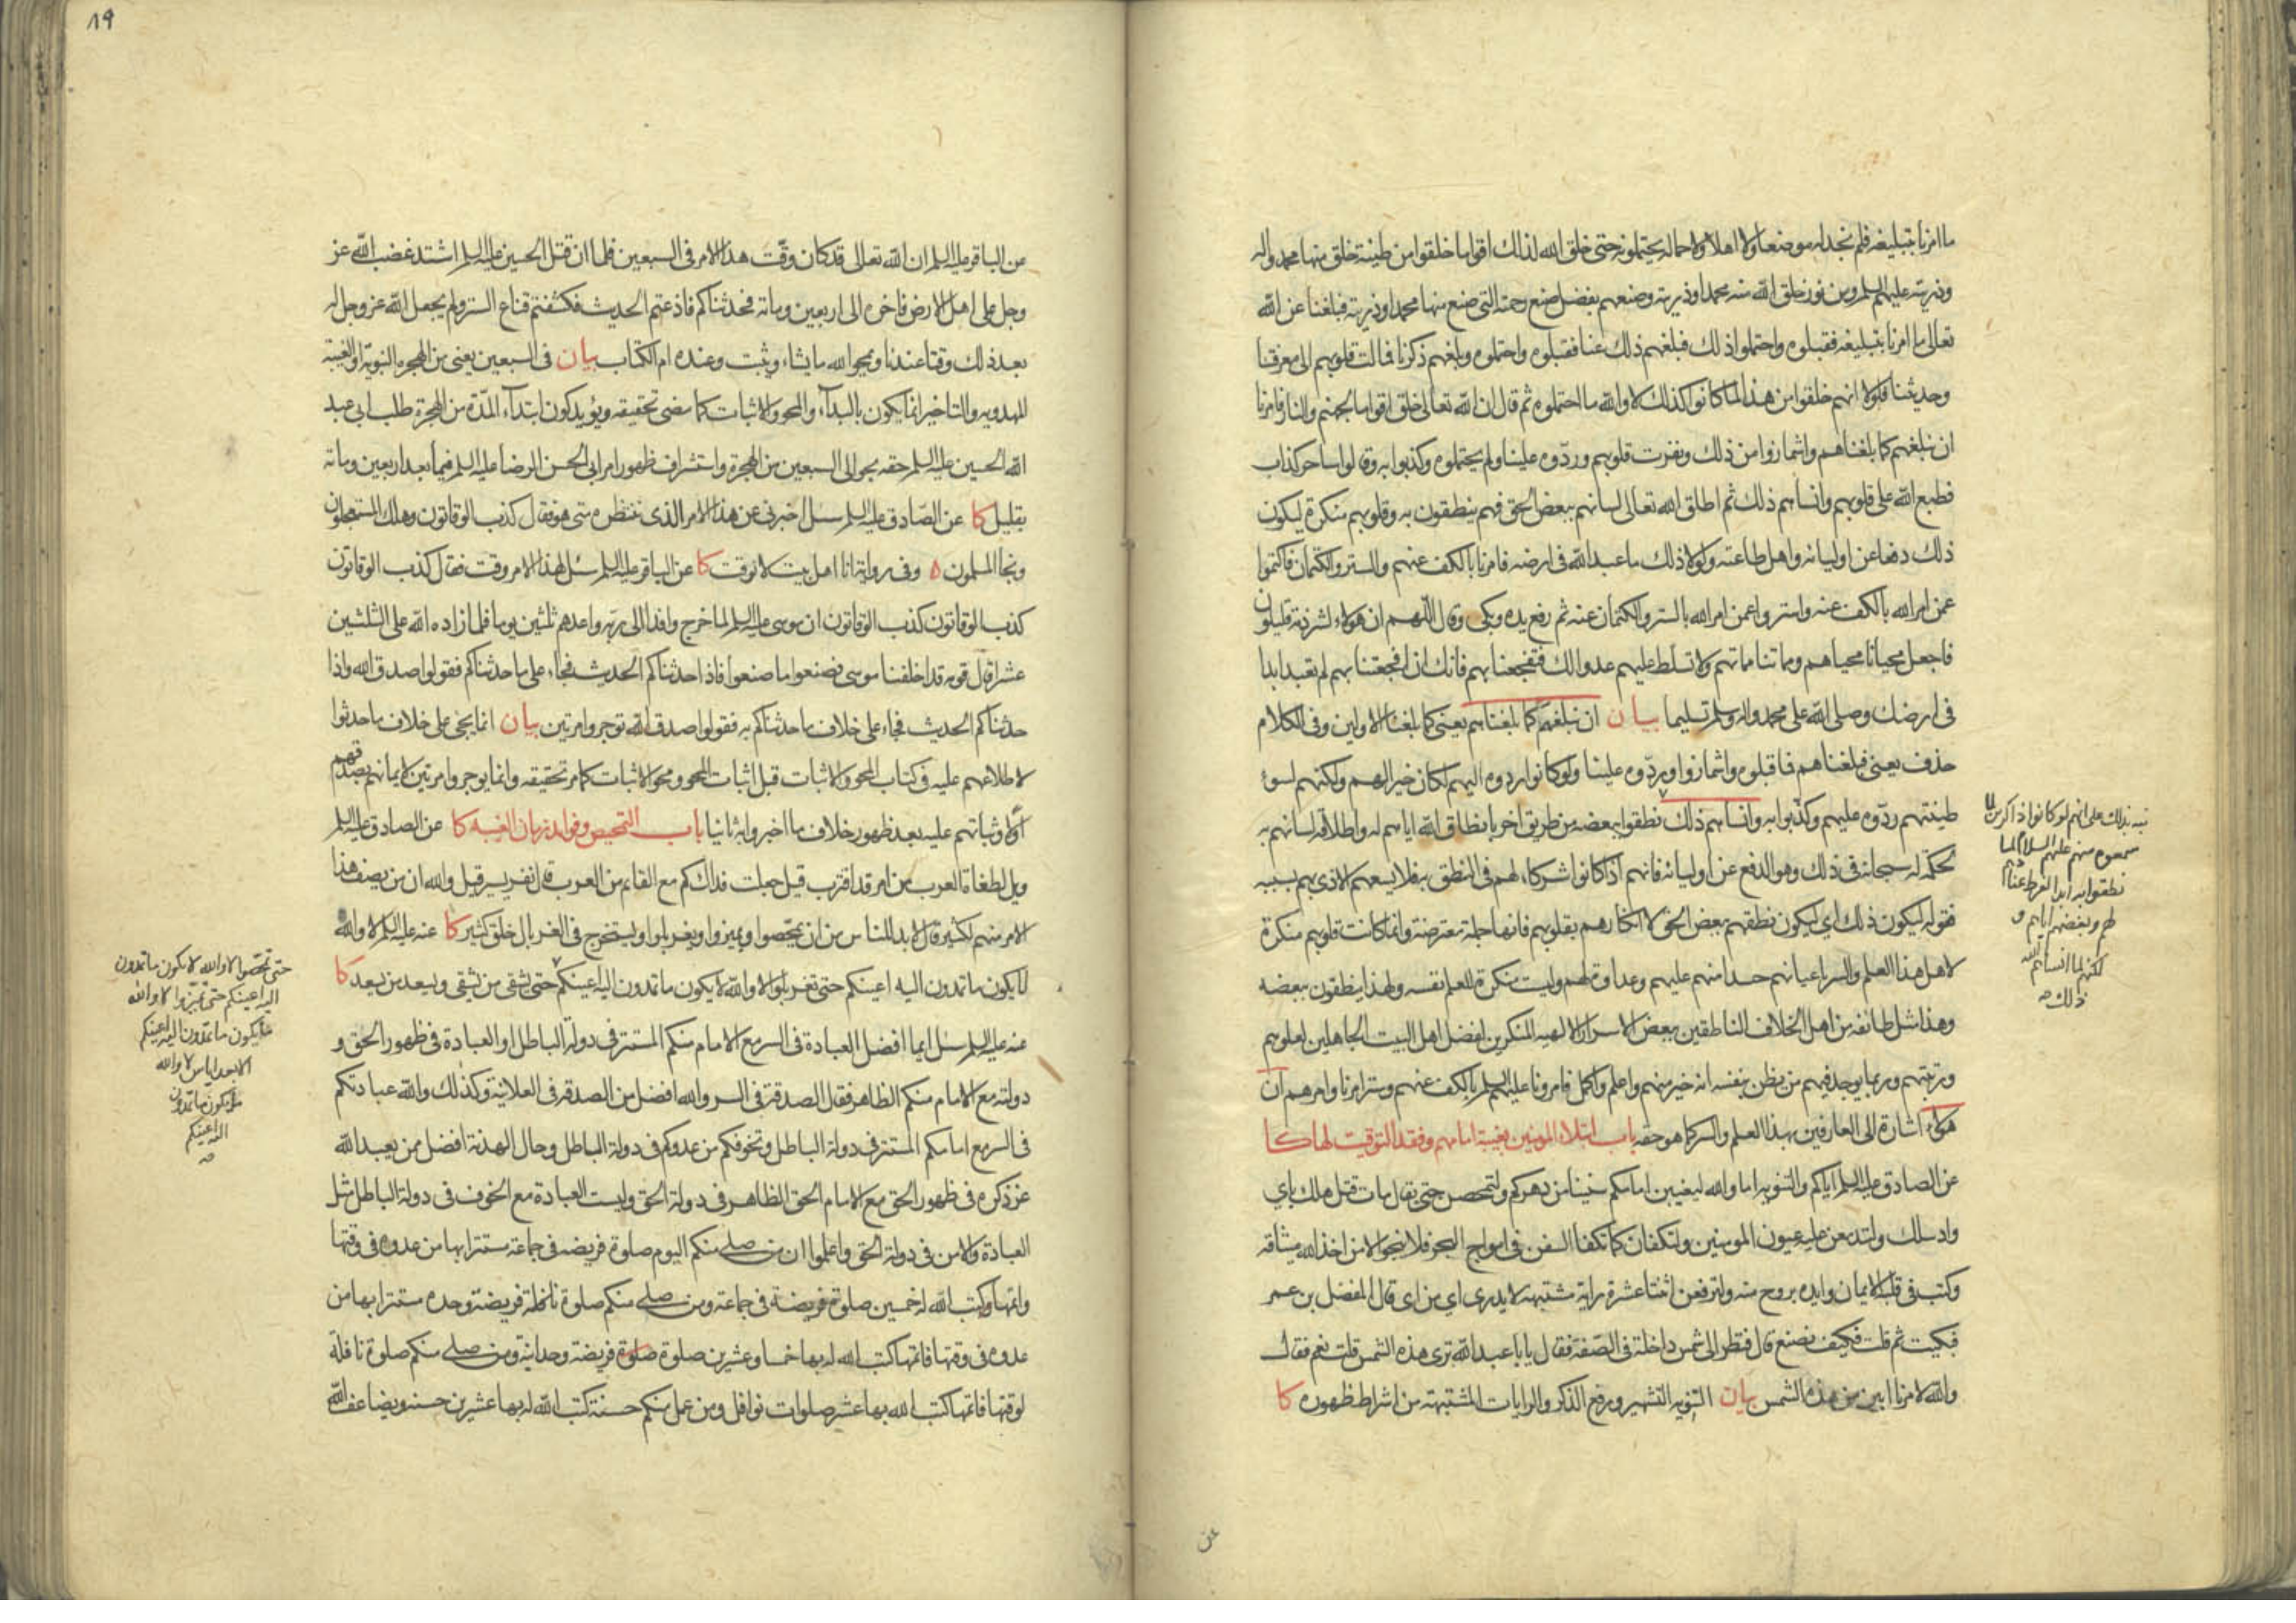 ما امرنا بتبليغه فلم نجد له موضعا ولا اهلا ولا حمالة يحتملونه حتى خلق الله لذلك اقواما خلقوا من طينة خلق منها محمد واله
وذريته عليهم السلم ومن نور خلق الله منه محمدا وذريته وصنعهم بفضل صنع رحمته التي صنع منها محمدا وذريته فبلغنا عن الله
تعالى ما امرنا بتبليغه فقبلوه واحتملوا ذلك فبلغهم ذلك عنا فقبلوه واحتملوه وبلغهم ذكرنا فمالت قلوبهم الى معرفتنا
وحديثنا فلولا انهم خلقوا من هذا لما كانوا كذلك لا والله ما احتملوه ثم قال ان الله تعالى خلق اقواما لجهنم والنار فامرنا
ان نبلغهم كما بلغناهم واشمازوا من ذلك ونفرت قلوبهم وردوه علينا ولم يحتملوه وكذبوا به وقالوا ساحر كذاب
فطبع الله على قلوبهم وانساهم ذلك ثم اطلق الله تعالى لسانهم ببعض الحق فهم ينطقون به وقلوبهم منكرة ليكون
ذلك دفعا عن اوليائه واهل طاعته ولولا ذلك ما عبد الله في ارضه فامرنا بالكف عنهم والستر والكتمان فاكتموا
عمن امر الله بالكف عنه واستروا عمن امر الله بالستر والكتمان عنه ثم رفع يده وبكى وقال اللهم ان هولاء لشرذمة قليلون
فاجعل محيانا محياهم ومماتنا مماتهم ولا تسلط عليهم عدوا لك فتفجعنا بهم فانك ان افجعتنا بهم لم تعبد ابدا
في ارضك وصلى الله على محمد واله وسلم تسليما بيان ان نبلغهم كما بلغناهم يعني كما بلغنا الاولين وفي الكلام
حذف يعني فبلغناهم فما قبلوه واشمازوا وردوه علينا ولو كانوا ردوه اليهم لكان خيرا لهم ولكنهم لسوء
طينتهم ردوه عليهم وكذبوا به وانساهم ذلك نطقوا ببعضه من طريق اخر بانطاق الله اياهم له واطلاقه لسانهم به
لحكمة له سبحانه في ذلك وهو الدفع عن اوليائه فانهم اذا كانوا شركاء لهم في النطق به فلا يسعهم الاذى بهم بسببه
فقوله ليكون ذلك اي ليكون نطقهم ببعض الحق لا انكارهم بقلوبهم فانها جملة معترضة وانما كانت قلوبهم منكرة
لاهل هذا العلم والسر باعيانهم حسدا منهم عليهم وعداوة لهم وليست منكرة للعلم نفسه ولهذا ينطقون ببعضه
وهذا مثل طائفة من اهل الخلاف الناطقين ببعض الاسرار الالهية المنكرين لفضل اهل البيت الجاهلين لعلومهم
ورتبتهم وربما يوجد فيهم من يظن بنفسه انه خير منهم واعلم واكمل فامرونا عليهم السلم بالكف عنهم وستر امرنا وامرهم ان
هولاء اشارة الى العارفين بهذا العلم والسر كما هو حقه باب ابتلاء المومنين بغيبة امامهم وفقد التوقيت لها كا
عن الصادق عليه السلم اياكم والتنويه اما والله ليغيبن امامكم سنينا من دهركم ولتمحصن حتى يقال مات قتل هلك باي
واد سلك ولتدمعن عليه عيون المومنين ولتكفان كما تكفا السفن في امواج البحر فلا ينجو الا من اخذ الله ميثاقه
وكتب في قلبه الايمان وايده بروح منه ولترفعن اثنتا عشرة راية مشتبهة لا يدرى اي من اي قال المفضل بن عمر
فبكيت ثم قلت فكيف نصنع قال فنظر الى شمس داخلة في الصفة فقال يابا عبد الله ترى هذه الشمس قلت نعم فقال
والله لامرنا ابين من هذه الشمس بيان التنويه التشهير ورفع الذكر والرايات المشتبهة من اشراط ظهوره كا
نبه بذلك على انهم لو كانوا ذاكرين لما
سمعوه منهم عليهم السلام لما
نطقوا به ابدا لفرط عنادهم
لهم وبغضهم اياهم و
لكنهم لما انساهم الله
ذلك صه
عن
١٩
عن الباقر عليه السلم ان الله تعالى قد كان وقت هذا الامر في السبعين فلما ان قتل الحسين عليه السلم اشتد غضب الله عز
وجل على اهل الارض فاخره الى اربعين ومائة فحدثناكم فاذعتم الحديث فكشفتم قناع الستر ولم يجعل الله عز وجل له
بعد ذلك وقتا عندنا ويمحوا الله ما يشاء ويثبت وعنده ام الكتاب بيان في السبعين يعني من الهجرة النبوية او الغيبة
المهدوية والتاخير انما يكون بالبداء والمحو والاثبات كما مضى تحقيقه ويؤيد كون ابتداء المدة من الهجرة طلب ابي عبد
الله الحسين عليه السلم حقه بحوالي السبعين من الهجرة واستشراف ظهور امر ابي الحسن الرضا عليه السلم فيما بعد اربعين ومائة
بقليل كا عن الصادق عليه السلم سئل اخبرني عن هذا الامر الذي ننتظره متى هو فقال كذب الوقاتون وهلك المستعجلون
ونجا المسلمون ه وفي رواية انا اهل بيت لا نوقت كا عن الباقر عليه السلم سئل لهذا الامر وقت فقال كذب الوقاتون
كذب الوقاتون كذب الوقاتون ان موسى عليه السلم لما خرج وافدا الى ربه واعدهم ثلثين يوما فلما زاده الله على الثلثين
عشرا قال قومه قد اخلفنا موسى فصنعوا ما صنعوا فاذا حدثناكم الحديث فجاء على ما حدثناكم فقولوا صدق الله واذا
حدثناكم الحديث فجاء على خلاف ما حدثناكم به فقولوا صدق الله توجروا مرتين بيان انما يجئ على خلاف ما حدثوا
لاطلاعهم عليه في كتاب المحو والاثبات قبل اثبات المحو ومحو الاثبات كما مر تحقيقه وانما يوجروا مرتين لايمانهم بصدقهم
اولا وثباتهم عليه بعد ظهور خلاف ما اخبروا به ثانيا باب التمحيص وفوائد زمان الغيبة كا عن الصادق عليه السلم
ويل لطغاة العرب من امر قد اقترب قيل جعلت فداك كم مع القائم من العرب قال نفر يسير قيل والله ان من يصف هذا
الامر منهم لكثير قال لا بد للناس من ان يمحصوا ويميزوا ويغربلوا ويستخرج في الغربال خلق كثير كا عنه عليه السلم لا والله
لا يكون ما تمدون اليه اعينكم حتى تغربلوا لا والله لا يكون ما تمدون اليه اعينكم حتى يشقى من يشقى ويسعد من يسعد كا
عنه عليه السلم سئل ايما افضل العبادة في السر مع الامام منكم المستتر في دولة الباطل او العبادة في ظهور الحق و
دولته مع الامام منكم الظاهر فقال الصدقة في السر والله افضل من الصدقة في العلانية وكذلك والله عبادتكم
في السر مع امامكم المستتر في دولة الباطل وتخوفكم من عدوكم في دولة الباطل وحال الهدنة افضل ممن يعبد الله
عز ذكره في ظهور الحق مع الامام الحق الظاهر في دولة الحق وليست العبادة مع الخوف في دولة الباطل مثل
العبادة والامن في دولة الحق واعلموا ان من صلى منكم اليوم صلوة فريضة في جماعة مستترا بها من عدوه في وقتها
واتمها وكتب الله له خمسين صلوة فريضة في جماعة ومن صلى منكم صلوة نافلة فريضة وحده مستترا بها من
عدوه في وقتها فاتمها كتب الله له بها خمسا وعشرين صلوة صلوة فريضة وحدانية ومن صلى منكم صلوة نافلة
لوقتها فاتمها كتب الله بها عشر صلوات نوافل ومن عمل منكم حسنة كتب الله له بها عشرين حسنة ويضاعف الله
حتى تمحصوا لا والله لا يكون ما تمدون
اليه اعينكم حتى تميزوا لا والله
ما يكون ما تمدون اليه اعينكم
الا بعد اياس لا والله
ما يكون ما تمدون
اليه اعينكم
صه